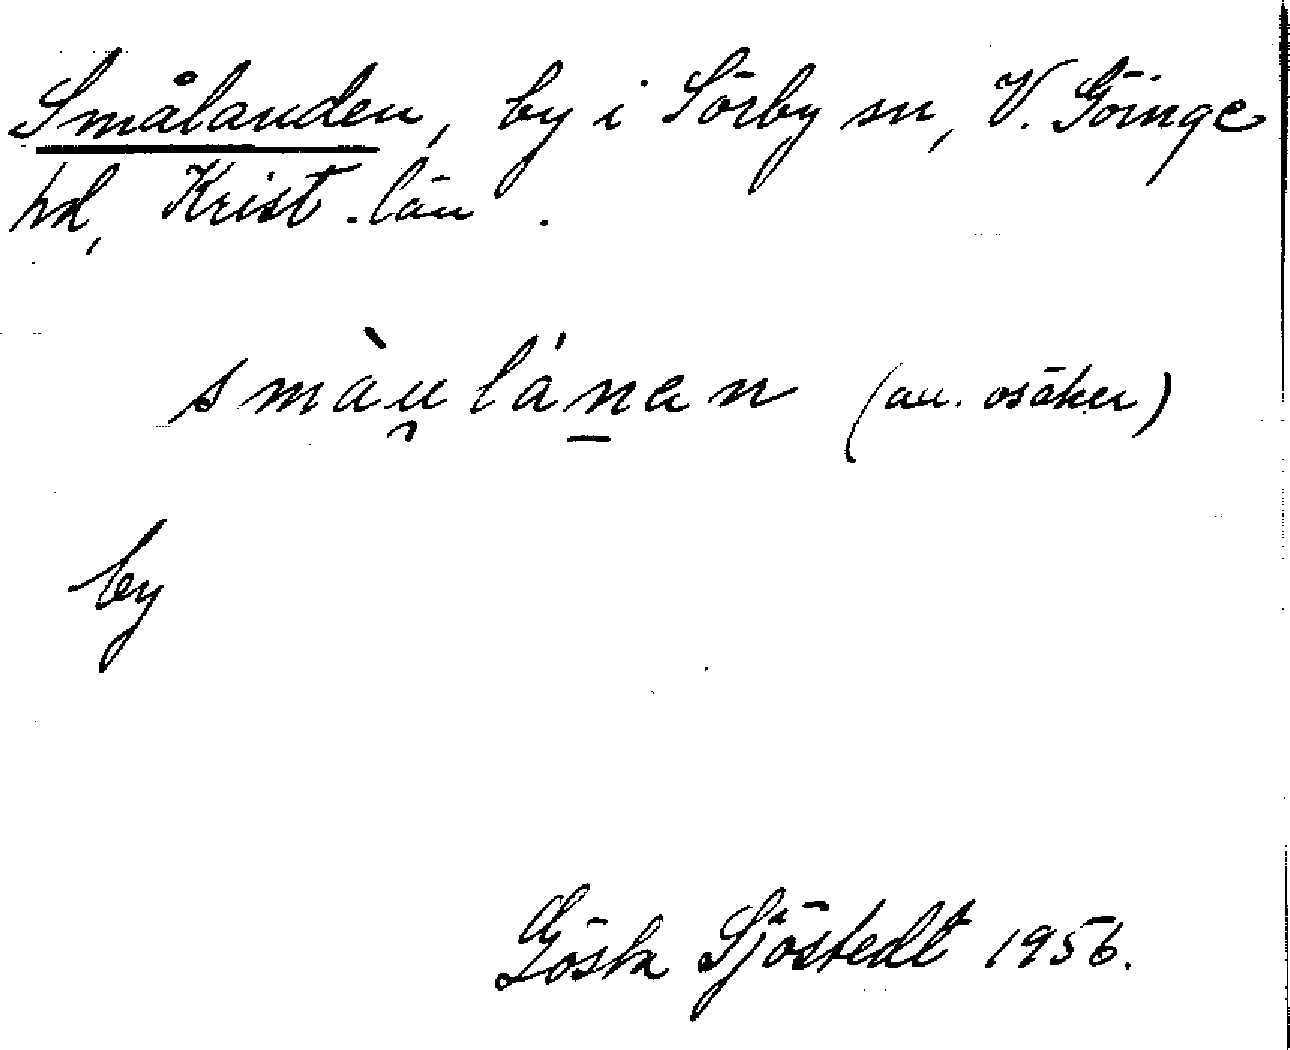 Smålanden, by i Sörby sn, V. Göinge
hd, Krist. län.
smàu̯lánen (au. osäker)
by
Gösta Sjöstedt 1956.